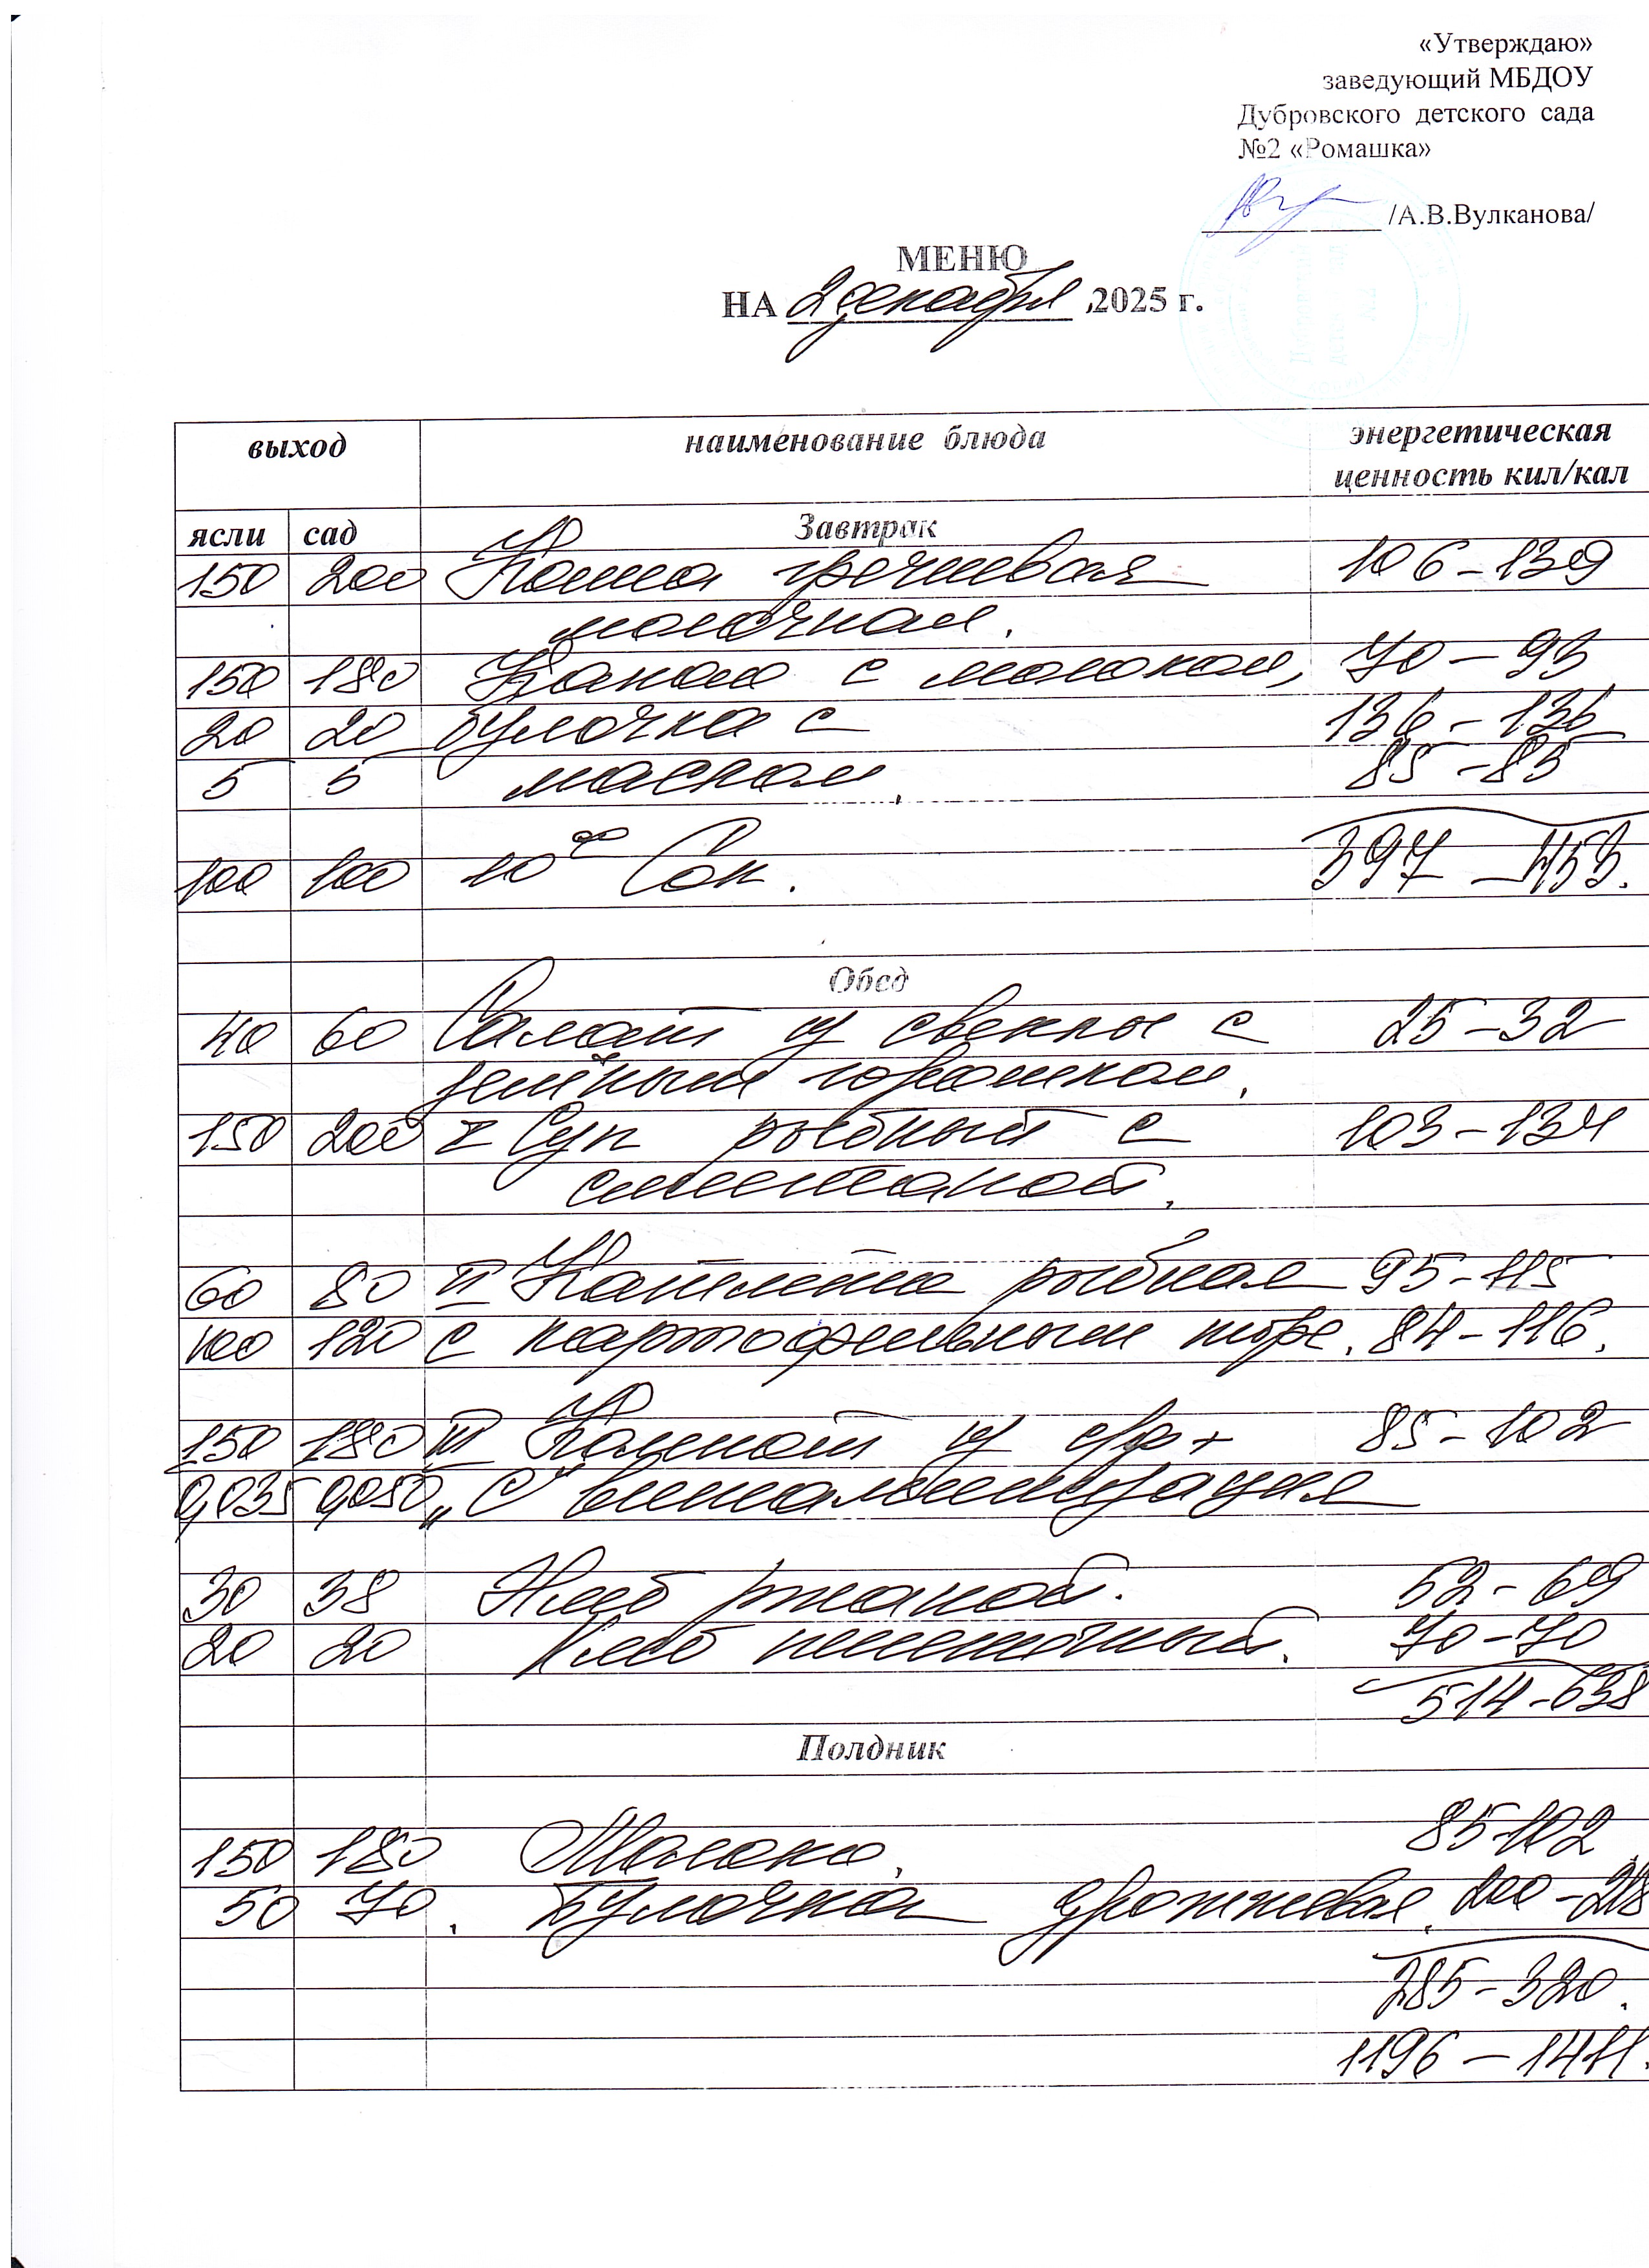 «Утверждаю»
заведующий МБДОУ
Дубровского детского сада
№2 «Ромашка»
/А.В.Вулканова/
МЕНЮ
НА 2 декабря 2025 г.
выход наименование блюда энергетическая
ценность кил/кал
ясли сад Завтрак
150 200 Каша гречневая 106-139
молочная.
150 180 Какао с молоком, 70-93
20 20 Булочка с 136-136
5 5 маслом. 85-85
397-453.
100 100 10 00 Сок.
Обед
40 60 Салат из свеклы с 25-32
зелёным горошком.
150 200 I Суп рыбный с 103-134
сметаной.
60 80 II Котлета рыбная 95-115
100 120 с картофельным пюре. 84-116.
150 180 III Компот из с/ф + 85-102
0,035 0,050 „С" витаминизация
30 38 Хлеб ржаной. 52-69
20 20 Хлеб пшеничный. 70-70
514-638
Полдник
150 180 Молоко. 85-102
50 70. Булочка дрожжевая. 200-218
285-320.
1196-1411.